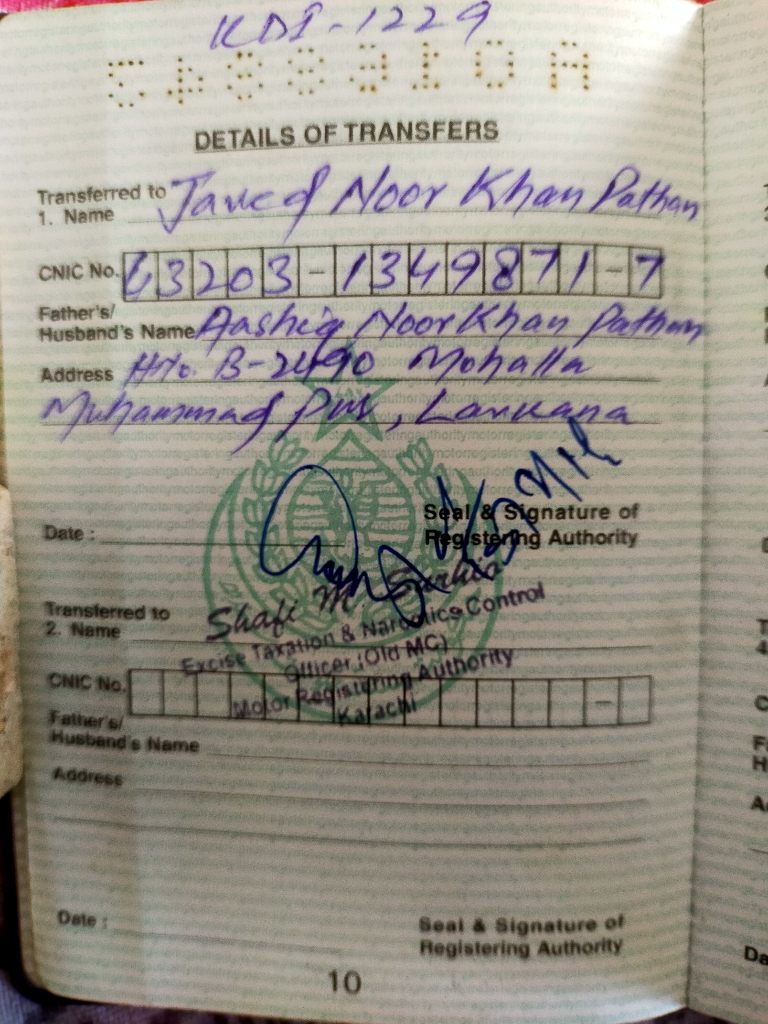 KDI-1229
DETAILS OF TRANSFERS
Transferred to
1. Name Javed Noor Khan Pathan
CNIC No. 43203-1349871-7
Father's/
Husband's Name Aashiq Noor Khan Pathan
Address H.No. B-2490 Mohalla
Muhammad Pur, Larkana
Date :
Seal & Signature of
Registering Authority
Shafi M.
Excise Taxation & Narcotics Control
Officer (Old MC)
Motor Registering Authority
Karachi
Transferred to
2. Name
CNIC No.
Father's/
Husband's Name
Address
Date :
Seal & Signature of
Registering Authority
10